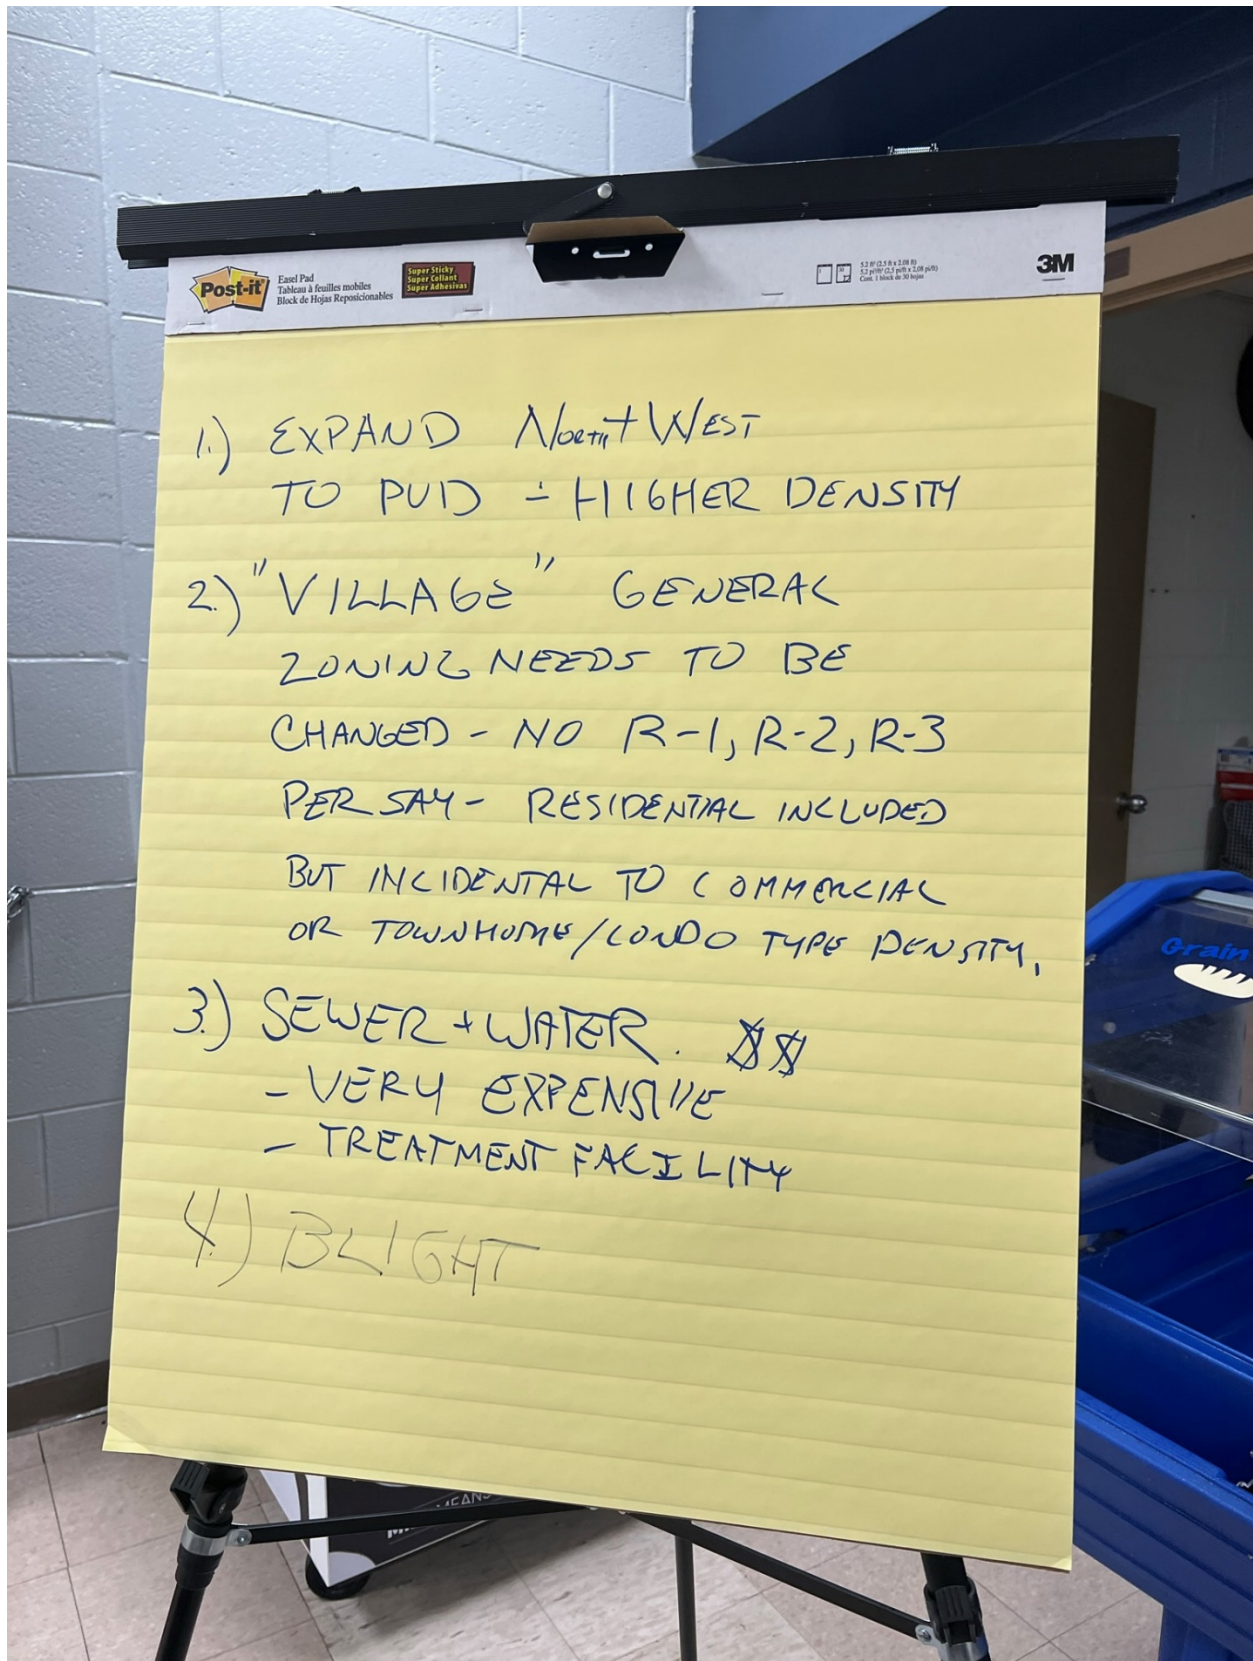 Post-it
Easel Pad
Tableau à feuilles mobiles
Block de Hojas Reposicionables
Super Sticky
Super Collant
Super Adhesivas
5.2 ft² (2.5 ft x 2.08 ft)
5.2 pi/ft² (2,5 pi/ft x 2,08 pi/ft)
Cont. 1 block de 30 hojas
3M
1.) EXPAND North + West
TO PUD - HIGHER DENSITY
2.) "VILLAGE" GENERAL
ZONING NEEDS TO BE
CHANGED - NO R-1, R-2, R-3
PER SAY - RESIDENTIAL INCLUDED
BUT INCIDENTAL TO COMMERCIAL
OR TOWNHOME/CONDO TYPE DENSITY.
3.) SEWER + WATER. $$
- VERY EXPENSIVE
- TREATMENT FACILITY
4.) BLIGHT
Grain
MEANS